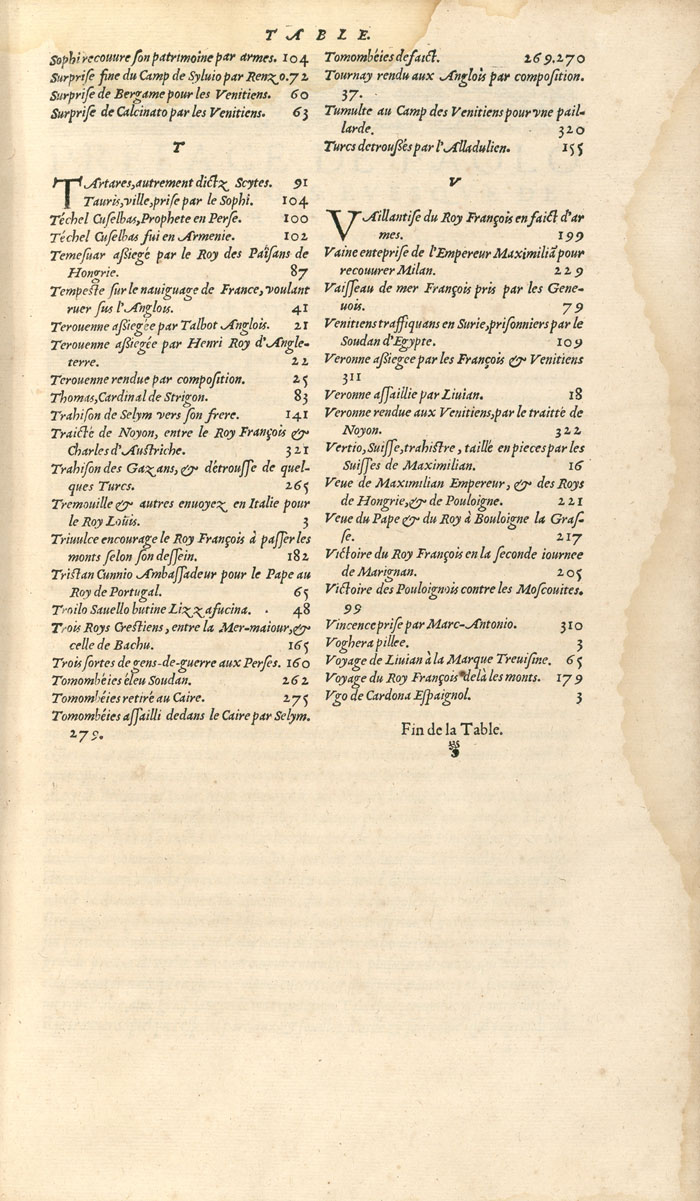 TABLE.
Sophi recouure son patrimoine par armes. 104
Surprise fine du Camp de Syluio par Renzo. 72
Surprise de Bergame pour les Venitiens. 60
Surprise de Calcinato par les Venitiens. 63
T
TArtares, autrement dictz Scytes. 91
Tauris, ville, prise par le Sophi. 104
Téchel Cuselbas, Prophete en Perse. 100
Téchel Cuselbas fui en Armenie. 102
Temesuar assiegé par le Roy des Païsans de
Hongrie. 87
Tempeste sur le nauiguage de France, voulant
ruer sus l'Anglois. 41
Terouenne assiegée par Talbot Anglois. 21
Terouenne assiegée par Henri Roy d'Angle-
terre. 22
Terouenne rendue par composition. 25
Thomas, Cardinal de Strigon. 83
Trahison de Selym vers son frere. 141
Traicté de Noyon, entre le Roy François &
Charles d'Austriche. 321
Trahison des Gazans, & détrousse de quel-
ques Turcs. 265
Tremouille & autres enuoyez en Italie pour
le Roy Loüis. 3
Triuulce encourage le Roy François à passer les
monts selon son dessein. 182
Tristan Cunnio Ambassadeur pour le Pape au
Roy de Portugal. 65
Troilo Sauello butine Lizzafucina. 48
Trois Roys Crestiens, entre la Mer-maiour, &
celle de Bachu. 165
Trois sortes de gens-de-guerre aux Perses. 160
Tomombéies éleu Soudan. 262
Tomombéies retiré au Caire. 275
Tomombéies assailli dedans le Caire par Selym.
279.
Tomombéies defaict. 269.270
Tournay rendu aux Anglois par composition.
37.
Tumulte au Camp des Venitiens pour vne pail-
larde. 320
Turcs detroussés par l'Alladulien. 155
V
VAillantise du Roy François en faict d'ar
mes. 199
Vaine enteprise de l'Empereur Maximiliã pour
recouurer Milan. 229
Vaisseau de mer François pris par les Gene-
uois. 79
Venitiens traffiquans en Surie, prisonniers par le
Soudan d'Egypte. 109
Veronne assiegee par les François & Venitiens
311
Veronne assaillie par Liuian. 18
Veronne rendue aux Venitiens, par le traitté de
Noyon. 322
Vertio, Suisse, trahistre, taillé en pieces par les
Suisses de Maximilian. 16
Veue de Maximilian Empereur, & des Roys
de Hongrie, & de Pouloigne. 221
Veue du Pape & du Roy à Bouloigne la Gras-
se. 217
Victoire du Roy François en la seconde iournee
de Marignan. 205
Victoire des Pouloignois contre les Moscouites.
99
Vincence prise par Marc-Antonio. 310
Voghera pillee. 3
Voyage de Liuian à la Marque Treuisine. 65
Voyage du Roy François delà les monts. 179
Vgo de Cardona Espaignol. 3
Fin de la Table.